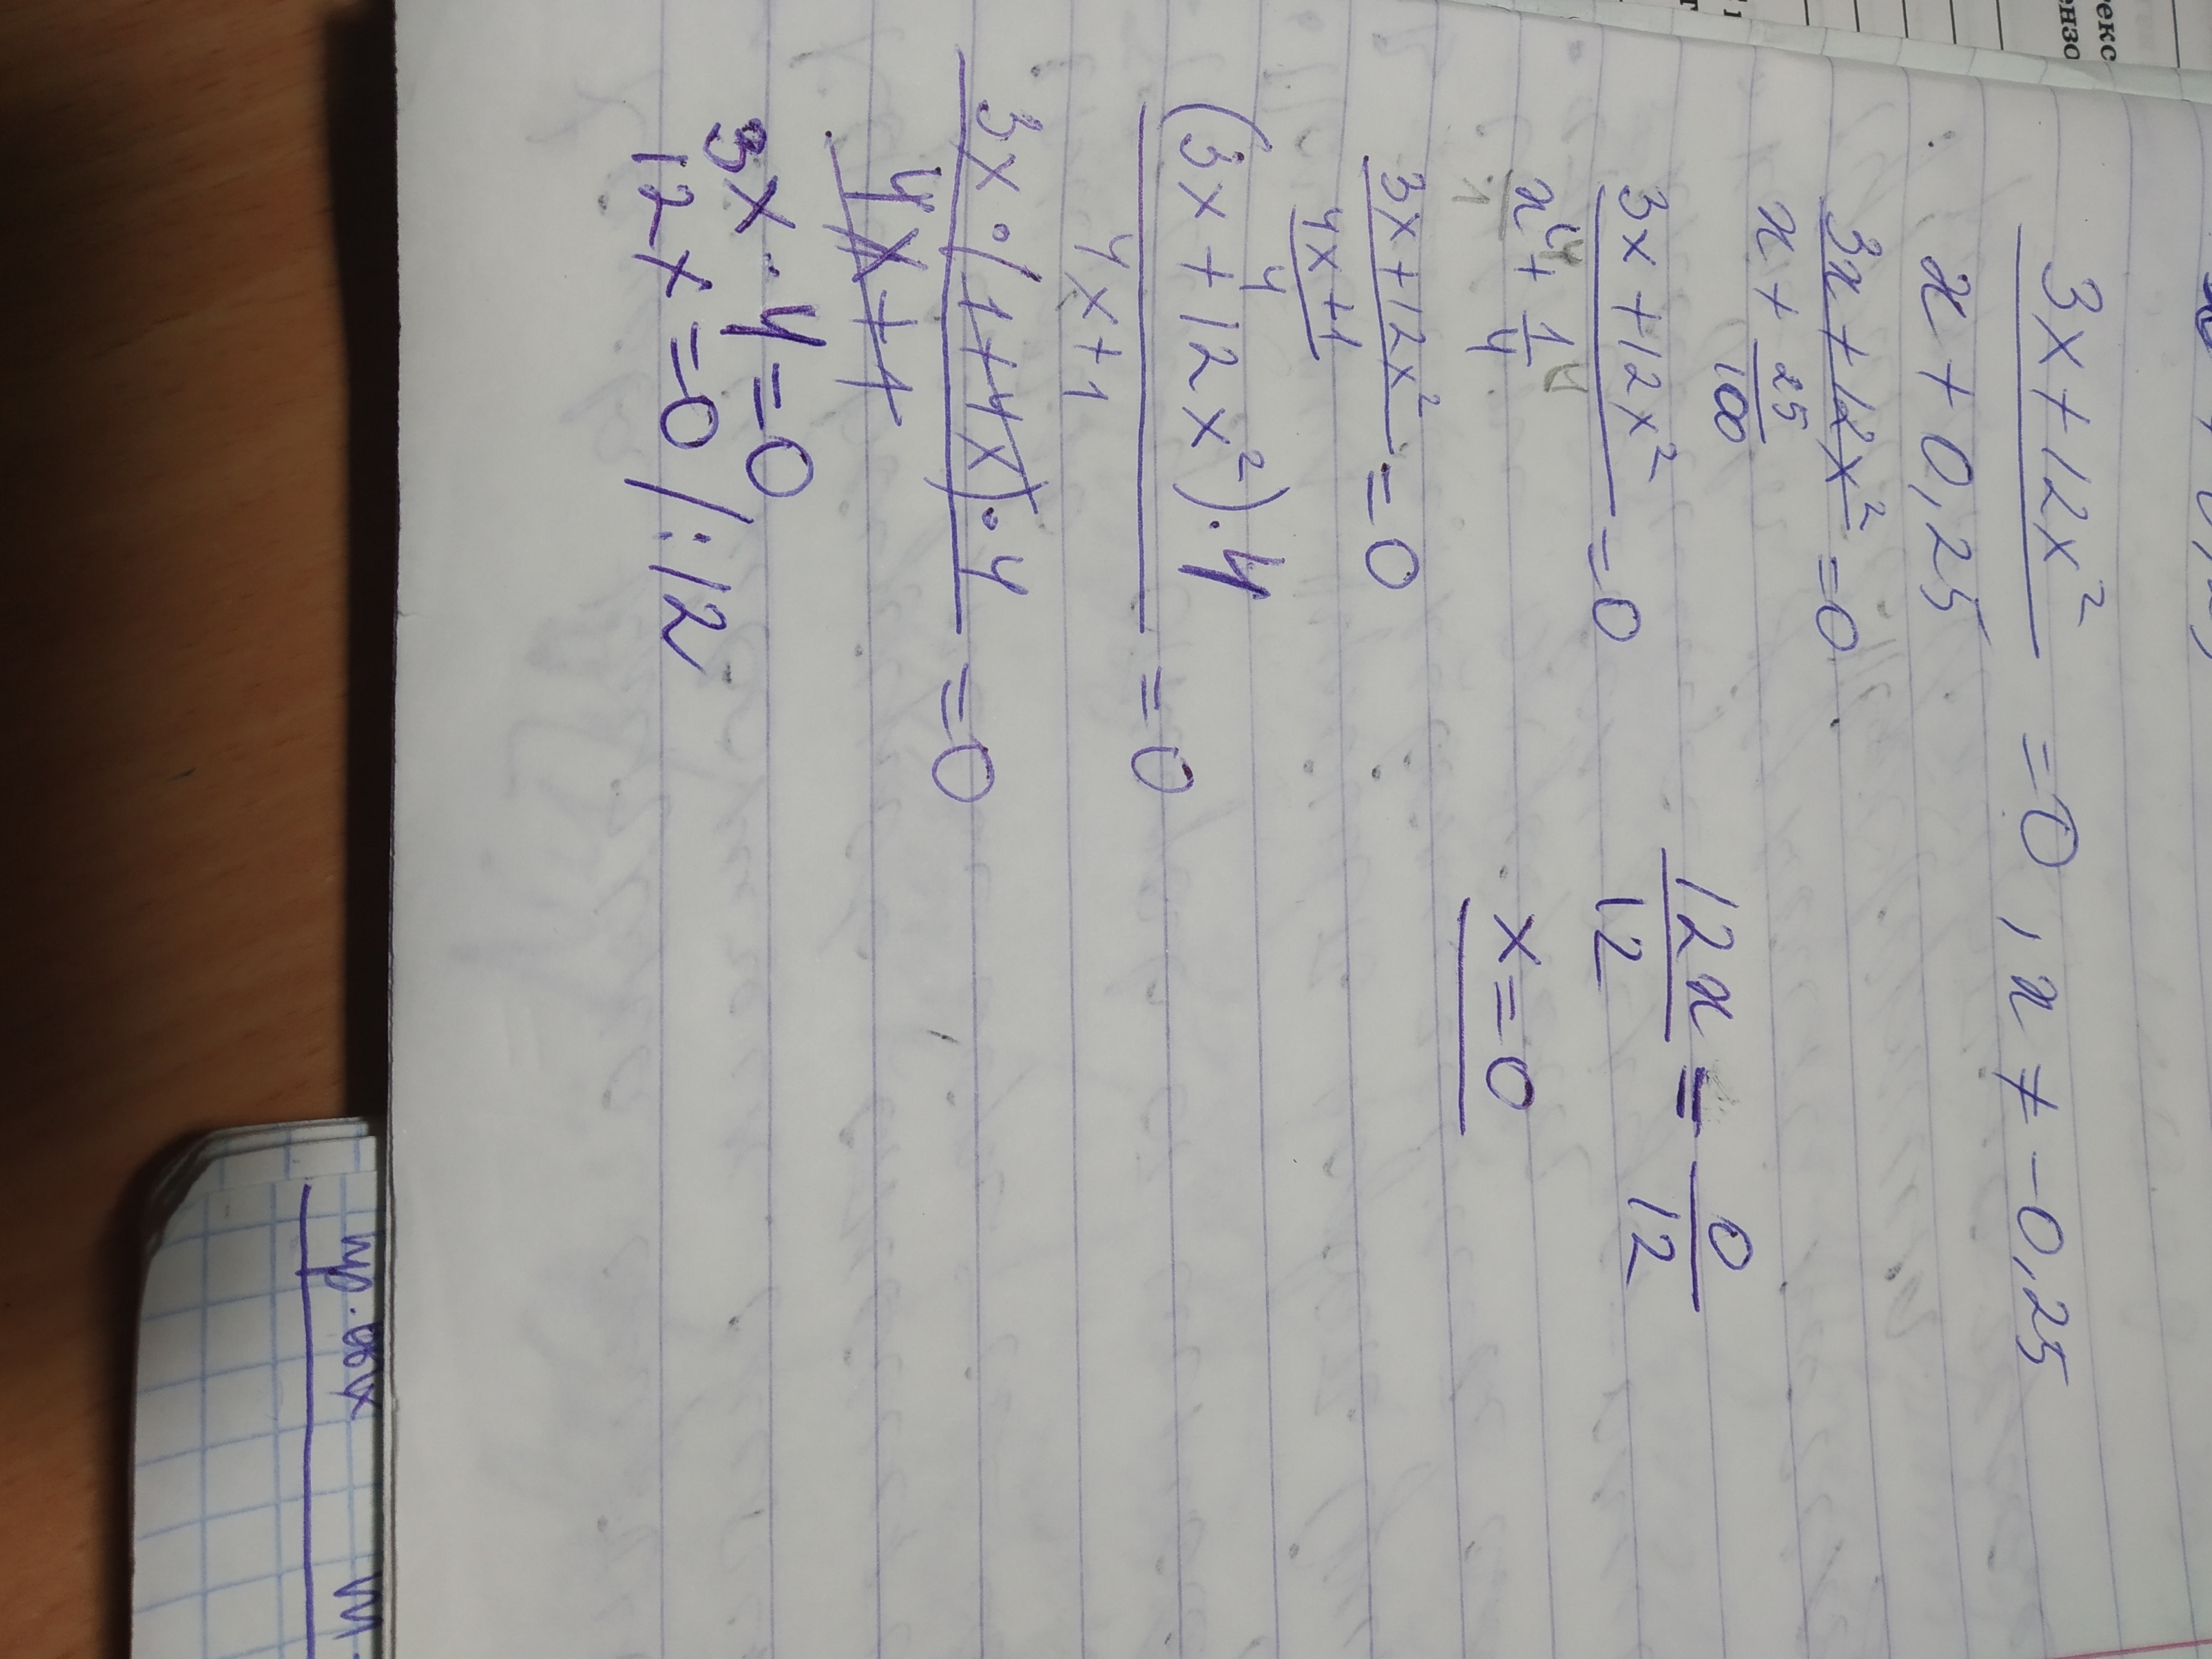 3x+12x² / x+0,25 = 0, x ≠ -0,25
3x+12x² / x + 25/100 = 0
3x+12x² / x/1 + 1/4 = 0
3x+12x² / (4x+1)/4 = 0
(3x+12x²)·4 / 4x+1 = 0
3x·(1+4x)·4 / 4x+1 = 0
3x·4=0
12x=0/:12
12x/12 = 0/12
x=0